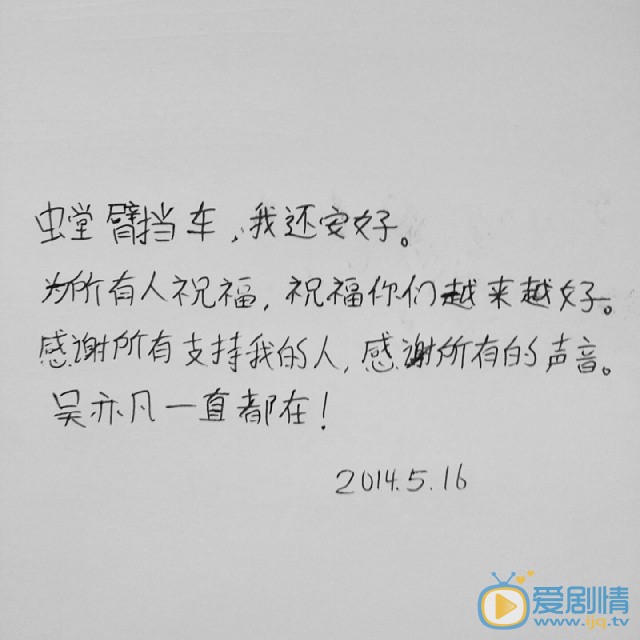 螳臂挡车,我还安好。
为所有人祝福,祝福你们越来越好。
感谢所有支持我的人,感谢所有的声音。
吴亦凡一直都在!
2014.5.16
爱剧情
www.ijq.tv